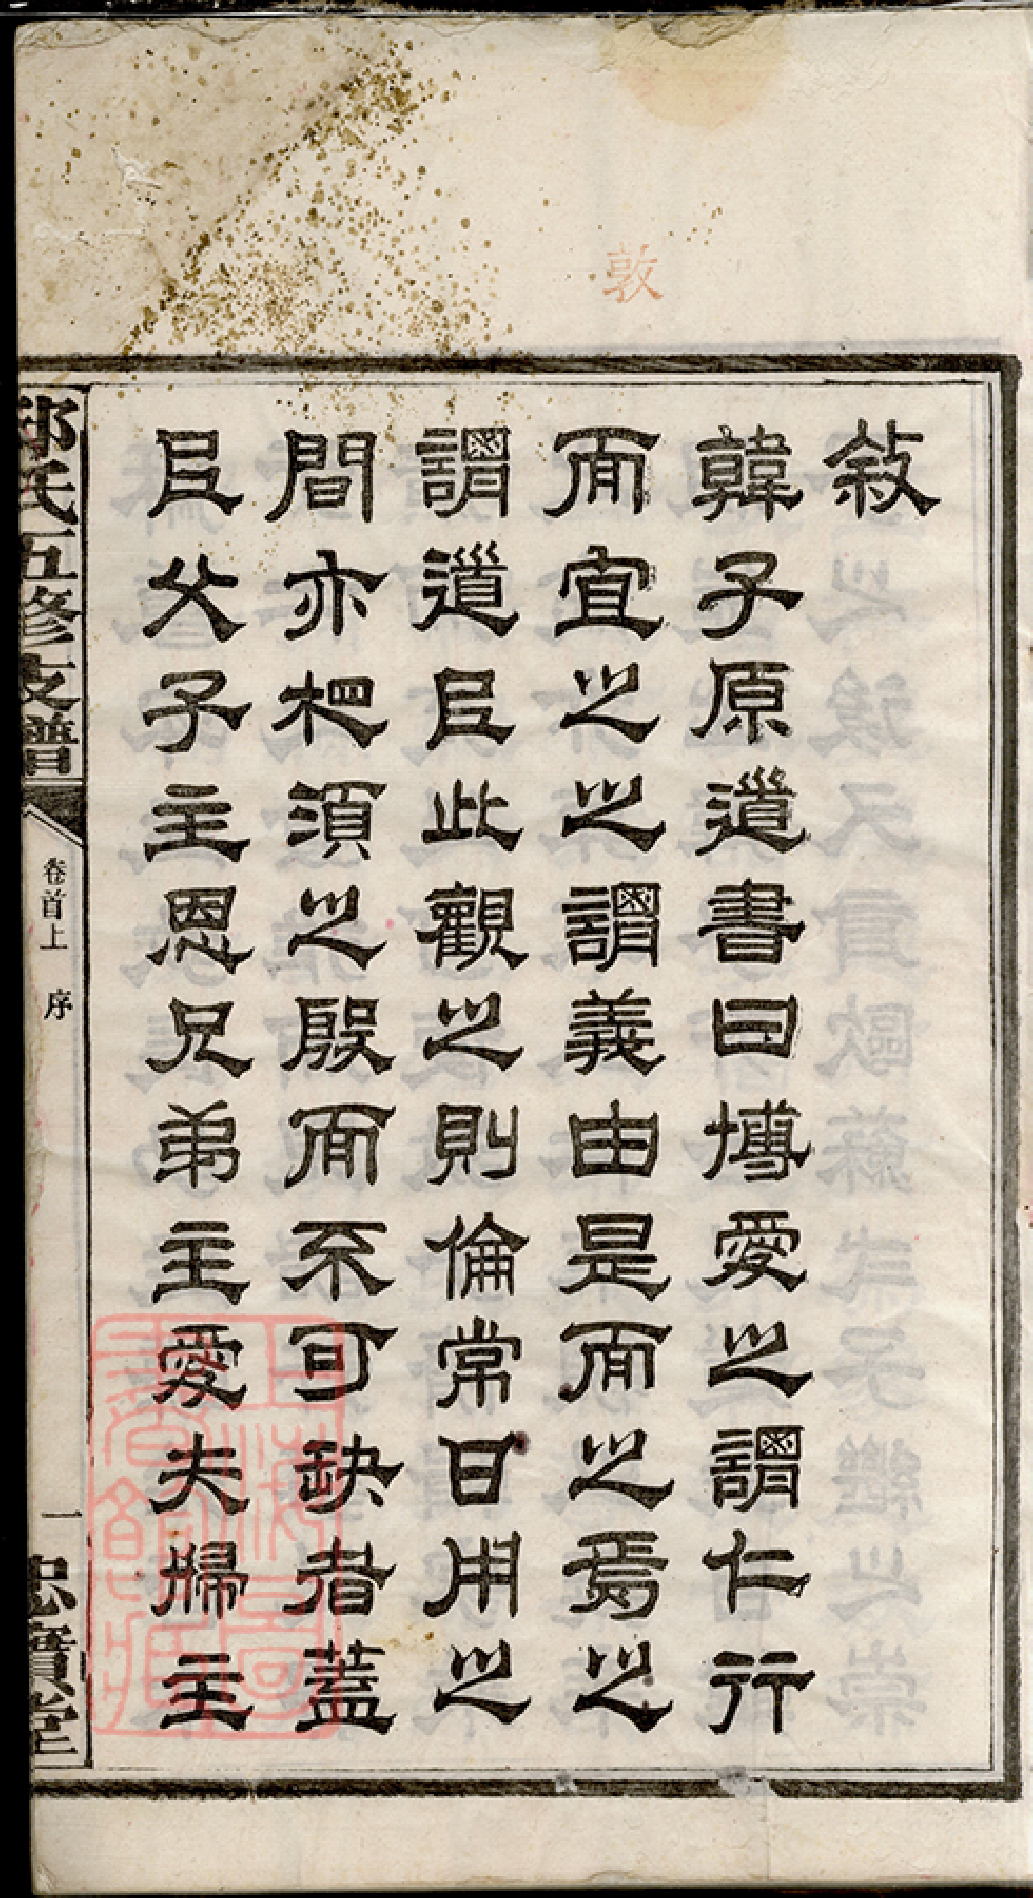 敦
敘
韓子原道書曰博愛之謂仁行
而宜之之謂義由是而之焉之
謂道㠯此觀之則倫常日用之
間亦相須之殷而不可缺者蓋
㠯父子主恩兄弟主愛夫婦主
氏五修支譜
卷首上 序
一
忠實堂
上海圖書館藏